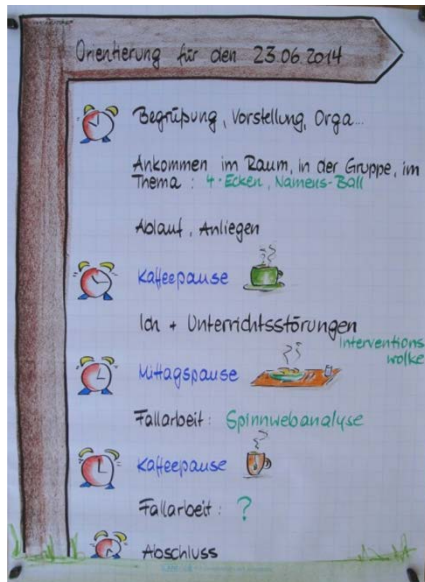 Orientierung für den 23.06.2014
Begrüßung, Vorstellung, Orga...
Ankommen im Raum, in der Gruppe, im
Thema: 4-Ecken, Namens-Ball
Ablauf, Anliegen
Kaffeepause
Ich + Unterrichtsstörungen
Interventions
wolke
Mittagspause
Fallarbeit: Spinnwebanalyse
Kaffeepause
Fallarbeit: ?
Abschluss